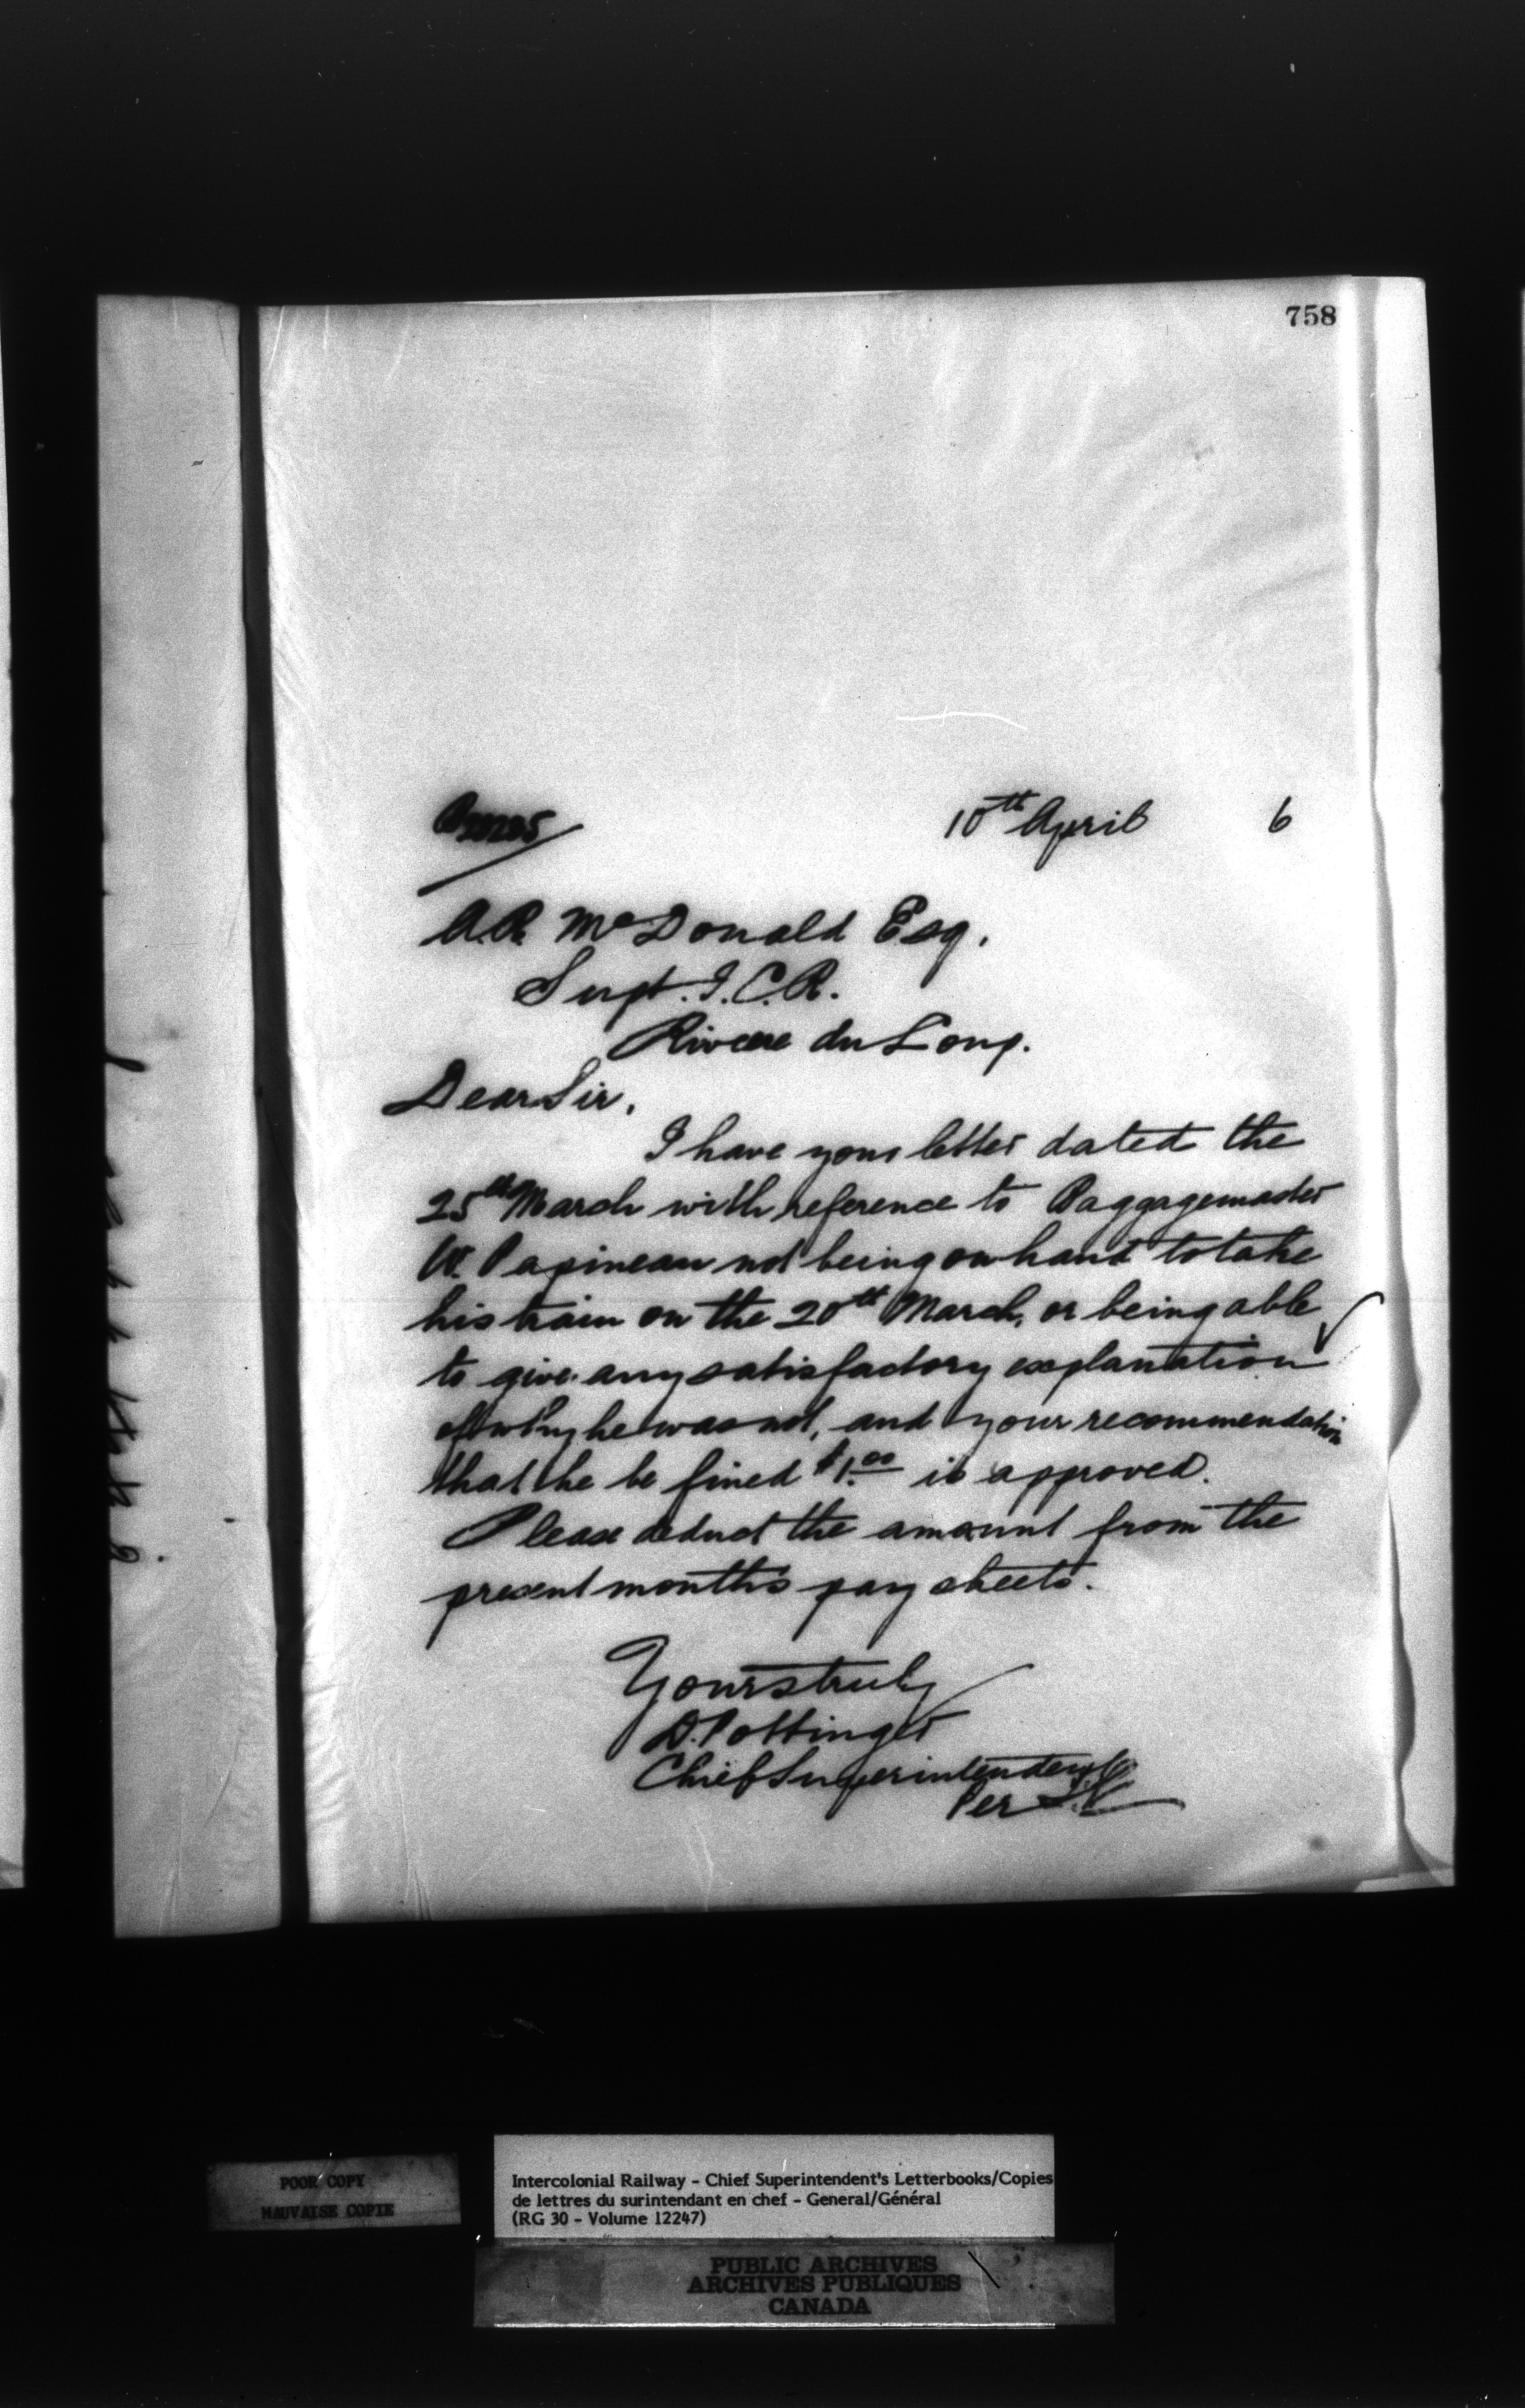 758
10th April 6
A.R. McDonald Esq.
Supt. I.C.R.
Riviere du Loup.
Dear Sir,
I have your letter dated the
25th March with reference to Baggagemaster
W. Papineau not being on hand to take
his train on the 20th March, or being able
to give any satisfactory explanation
of why he was not, and your recommendation
that he be fined $1.00 is approved.
Please deduct the amount from the
present months pay sheets.
Yours truly
D. Pottinger
Chief Superintendent
Per
POOR COPY
MAUVAISE COPIE
Intercolonial Railway - Chief Superintendent's Letterbooks/Copies
de lettres du surintendant en chef - General/Général
(RG 30 - Volume 12247)
PUBLIC ARCHIVES
ARCHIVES PUBLIQUES
CANADA